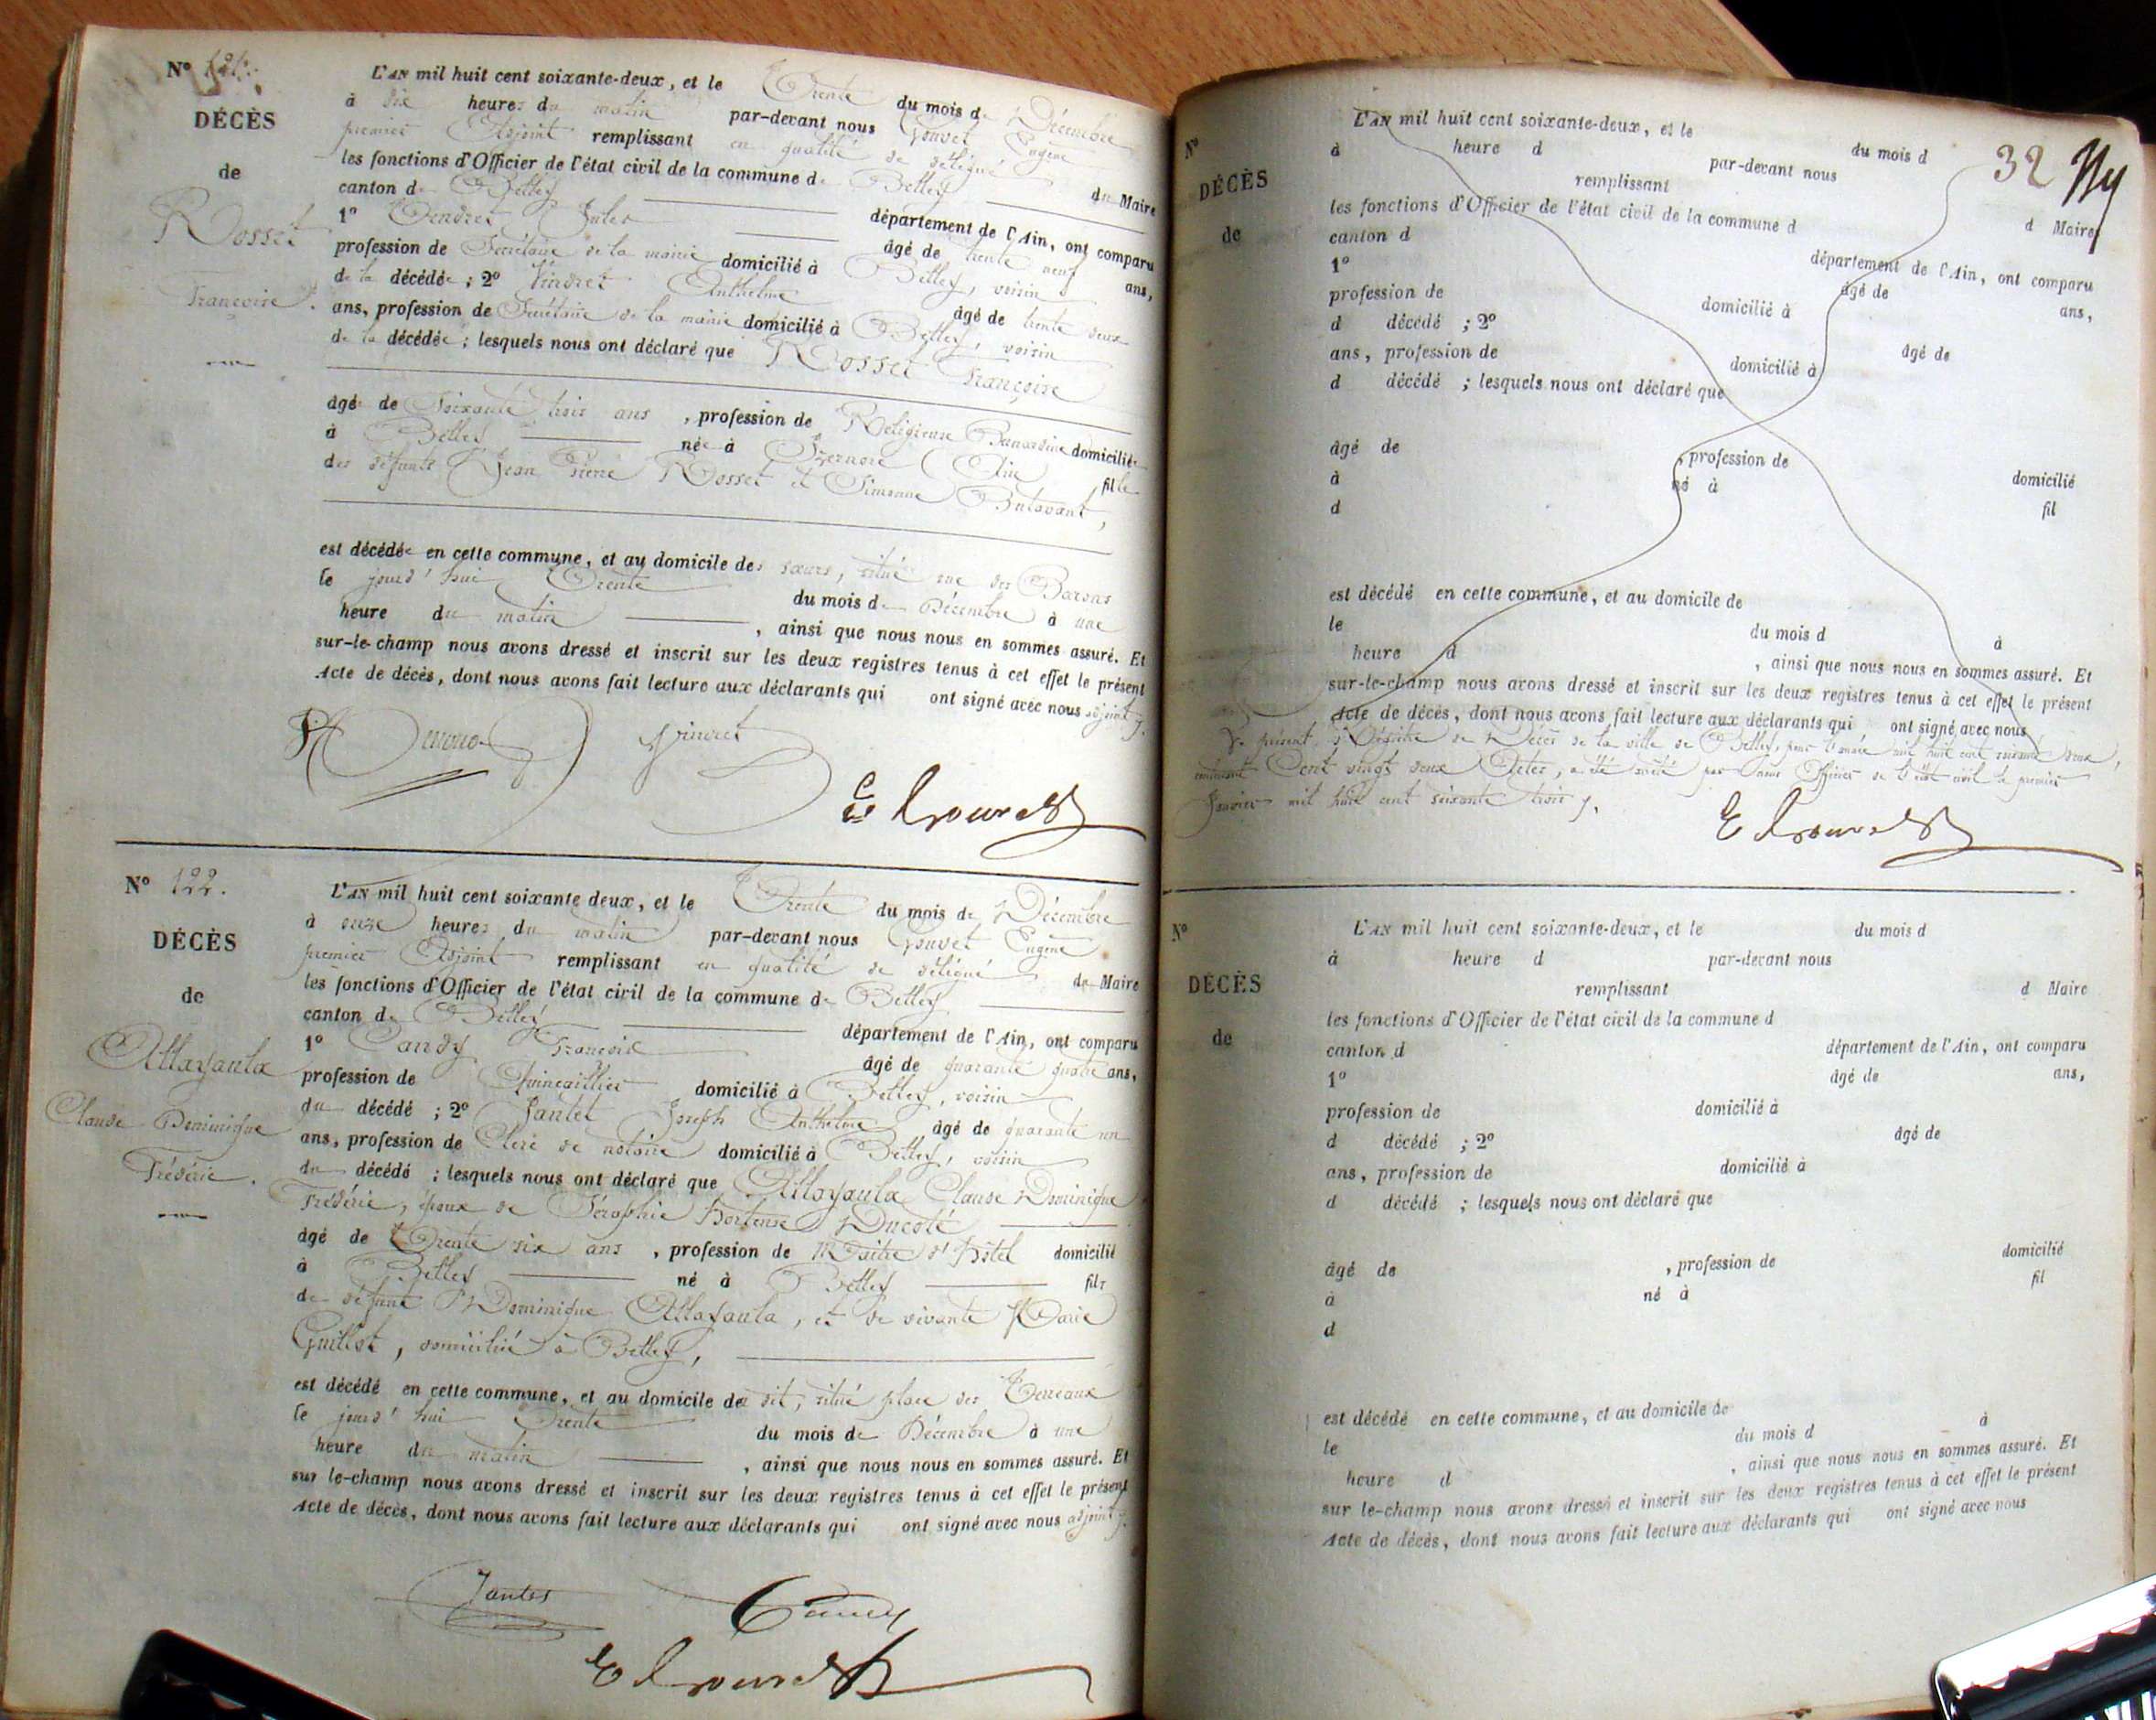 Nº 121.
DÉCÈS
de
Rosset
Françoise.
L'AN mil huit cent soixante-deux, et le Trente du mois de Décembre
à dix heures du matin par-devant nous Gouvet Eugène
premier Adjoint remplissant en qualité de délégué du Maire
les fonctions d'Officier de l'état civil de la commune de Belley
canton de Belley département de l'Ain, ont comparu
1º Jules âgé de trente neuf ans,
profession de Secrétaire de la mairie domicilié à Belley, voisin
de la décédée ; 2º Vindret Anthelme âgé de trente deux
ans, profession de Secrétaire de la mairie domicilié à Belley, voisin
de la décédée ; lesquels nous ont déclaré que Rosset Françoise
âgée de Soixante trois ans , profession de Religieuse Bernardine domiciliée
à Belley née à Izernore (Ain) fille
des défunts Jean Pierre Rosset et Simonne Butavant,
est décédée en cette commune, et au domicile des sœurs, situé rue des Barons
le jourd'hui Trente du mois de Décembre à une
heure du matin , ainsi que nous nous en sommes assuré. Et
sur-le-champ nous avons dressé et inscrit sur les deux registres tenus à cet effet le présent
Acte de décès, dont nous avons fait lecture aux déclarants qui ont signé avec nous adjoint
Vindret
E Gouvet
Nº 122.
DÉCÈS
de
Allayaula
Claude Dominique
Frédéric.
L'AN mil huit cent soixante deux, et le Trente du mois de Décembre
à onze heures du matin par-devant nous Gouvet Eugène
premier Adjoint remplissant en qualité de délégué du Maire
les fonctions d'Officier de l'état civil de la commune de Belley
canton de Belley département de l'Ain, ont comparu
1º Candy François âgé de quarante quatre ans,
profession de Quincaillier domicilié à Belley, voisin
du décédé ; 2º Jantet Joseph Anthelme âgé de quarante un
ans, profession de Clerc de notaire domicilié à Belley, voisin
du décédé ; lesquels nous ont déclaré que Allayaula Claude Dominique
Frédéric, époux de Séraphie Hortense Ducoté
âgé de Trente six ans , profession de Maître d'Hôtel domicilié
à Belley né à Belley fils
de défunt Dominique Allayaula, et de vivante Marie
Guillot, domiciliée à Belley,
est décédé en cette commune, et au domicile de dit, situé place des Terreaux
le jourd'hui Trente du mois de Décembre à une
heure du matin , ainsi que nous nous en sommes assuré. Et
sur le-champ nous avons dressé et inscrit sur les deux registres tenus à cet effet le présent
Acte de décès, dont nous avons fait lecture aux déclarants qui ont signé avec nous adjoint
Jantet
Candy
E Gouvet
32
Nº
DÉCÈS
de
L'AN mil huit cent soixante-deux, et le du mois d
à heure d par-devant nous
remplissant d Maire
les fonctions d'Officier de l'état civil de la commune d
canton d département de l'Ain, ont comparu
1º âgé de ans,
profession de domicilié à
d décédé ; 2º âgé de
ans, profession de domicilié à
d décédé ; lesquels nous ont déclaré que
âgé de , profession de domicilié
à né à fil
d
est décédé en cette commune, et au domicile de
le du mois d à
heure d , ainsi que nous nous en sommes assuré. Et
sur-le-champ nous avons dressé et inscrit sur les deux registres tenus à cet effet le présent
Acte de décès, dont nous avons fait lecture aux déclarants qui ont signé avec nous
Le présent Registre de Décès de la ville de Belley, pour l'année mil huit cent soixante deux,
contenant Cent vingt deux Actes, a été arrêté par nous Officier de l'état civil le premier
Janvier mil huit cent soixante trois.
E Gouvet
Nº
DÉCÈS
de
L'AN mil huit cent soixante-deux, et le du mois d
à heure d par-devant nous
remplissant d Maire
les fonctions d'Officier de l'état civil de la commune d
canton d département de l'Ain, ont comparu
1º âgé de ans,
profession de domicilié à
d décédé ; 2º âgé de
ans, profession de domicilié à
d décédé ; lesquels nous ont déclaré que
âgé de , profession de domicilié
à né à fil
d
est décédé en cette commune, et au domicile de
le du mois d à
heure d , ainsi que nous nous en sommes assuré. Et
sur le-champ nous avons dressé et inscrit sur les deux registres tenus à cet effet le présent
Acte de décès, dont nous avons fait lecture aux déclarants qui ont signé avec nous